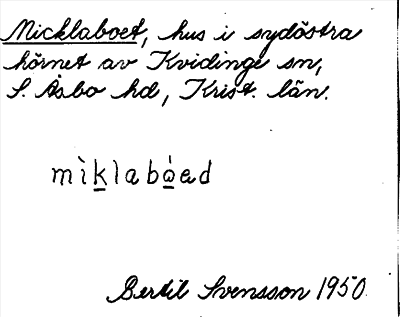 Micklaboet, hus i sydöstra
hörnet av Kvidinge sn,
S. Åsbo hd, Krist. län.
mìk̲labǻ̲ed
Bertil Svensson 1950